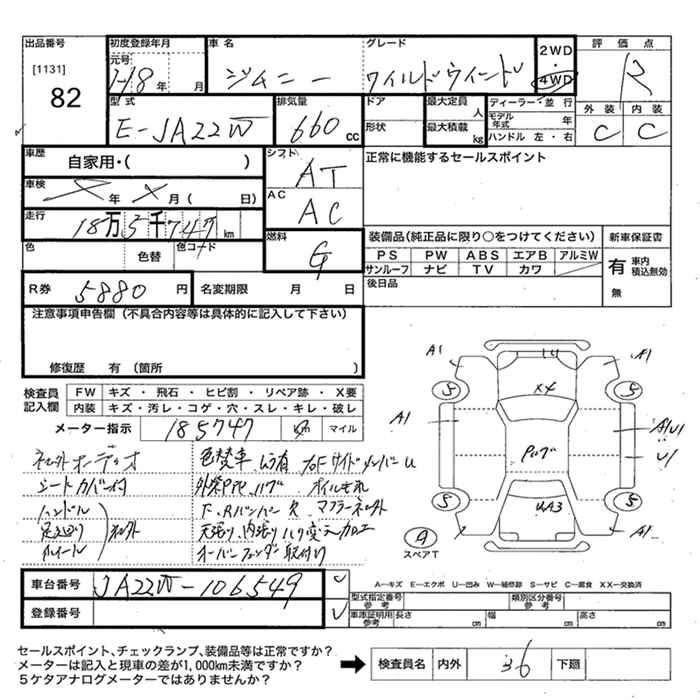 出品番号
[1131]
82
初度登録年月
元号
H8年 月
車名
ジムニー
グレード
ワイルドウインド
2WD
・
4WD
評価点
R
外装 内装
C C
型式
E-JA22W
排気量
660 cc
ドア
形状
最大定員
人
最大積載
kg
ディーラー・並行
モデル年式 年
ハンドル 左・右
車歴
自家用・( )
シフト
AT
正常に機能するセールスポイント
車検
年 月( 日)
AC
AC
走行
18万5千747km
色
色替
色コード
燃料
G
装備品(純正品に限り○をつけてください)
新車保証書
PS PW ABS エアB アルミW
サンルーフ ナビ TV カワ
有
無
車内積込無効
後日品
R券
5880円
名変期限 月 日
注意事項申告欄(不具合内容等は具体的に記入して下さい)
修復歴 有(箇所 )
検査員記入欄
FW キズ・飛石・ヒビ割・リペア跡・X要
内装 キズ・汚レ・コゲ・穴・スレ・キレ・破レ
メーター指示
185747
km
マイル
シートカバー付
ハンドル
足廻り
ホイール
色替車
オイルもれ
F、Rバンパー
天張り、内張り
オーバーフェンダー取付り
A1
14
A1
5
X4
5
A1
A1U1
U1
5
UA3
5
A1
A1
9
スペアT
車台番号
JA22W-106549
登録番号
A―キズ E―エクボ U―凹み W―補修跡 S―サビ C―腐食 XX―交換済
型式指定番号
参考
類別区分番号
参考
車庫証明用
参考
長さ cm 幅 cm 高さ cm
セールスポイント、チェックランプ、装備品等は正常ですか?
メーターは記入と現車の差が1,000km未満ですか?
5ケタアナログメーターではありませんか?
検査員名 内外 36 下廻